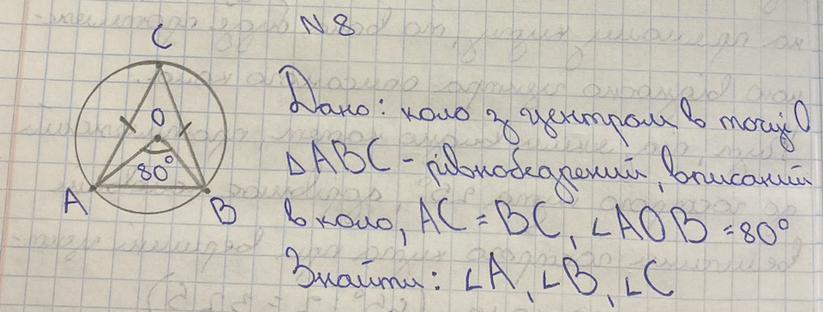 N8
C
O
80°
A
B
Дано: коло з центром в точці O
△ABC - рівнобедрений, вписаний
в коло, AC = BC, ∠AOB = 80°
Знайти: ∠A, ∠B, ∠C